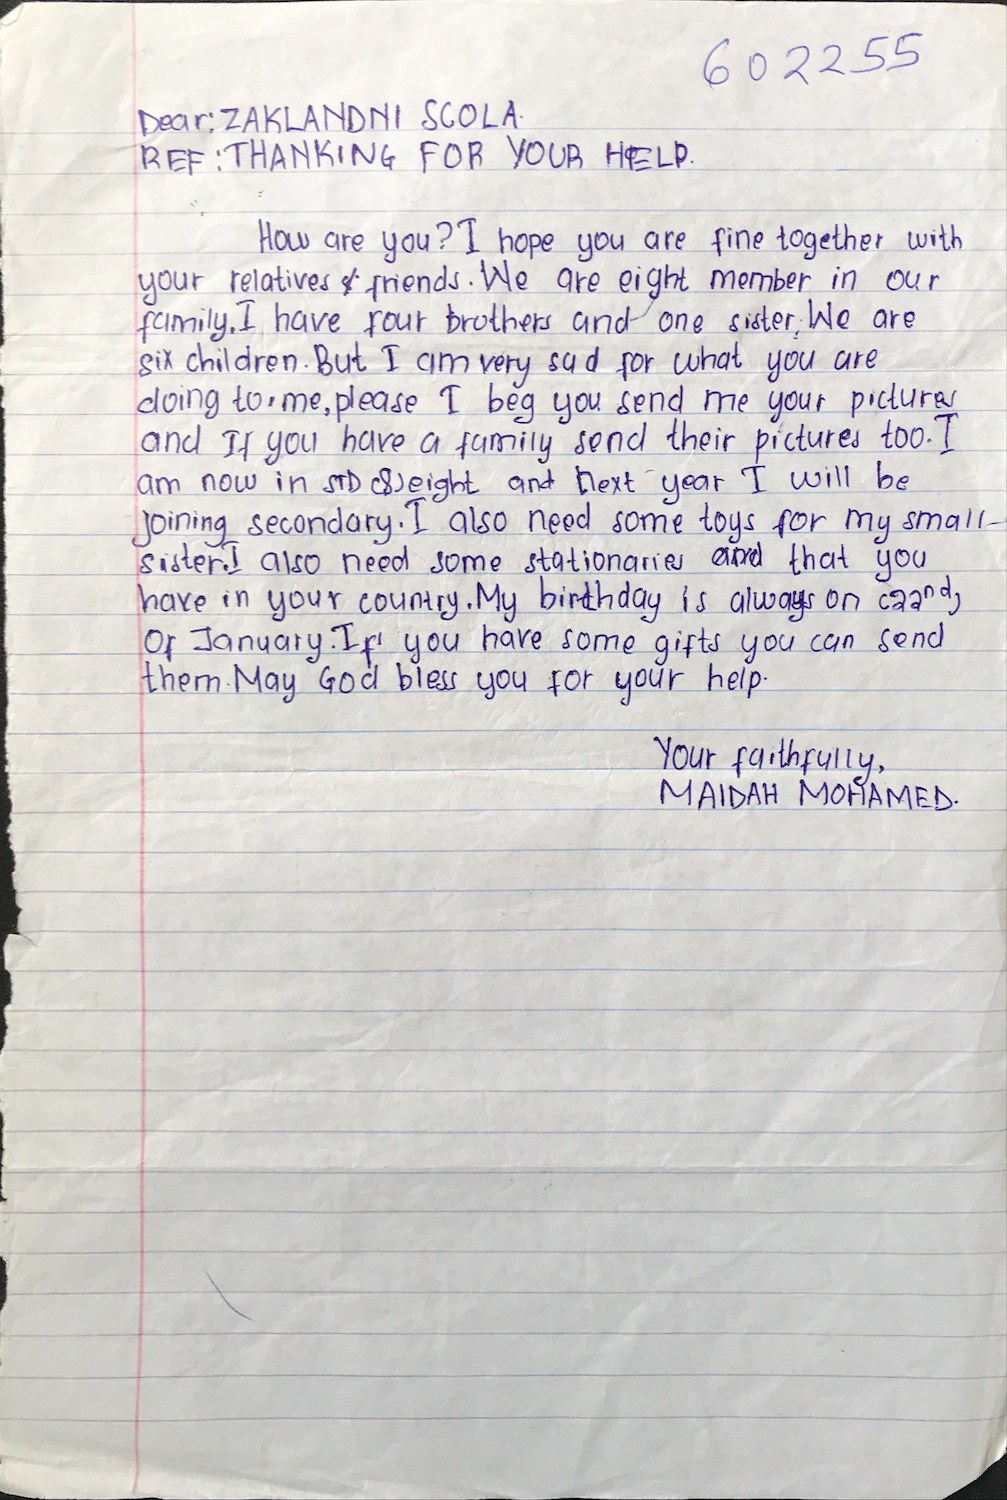 602255
Dear: ZAKLANDNI SCOLA.
REF: THANKING FOR YOUR HELP.
How are you? I hope you are fine together with
your relatives & friends. We are eight member in our
family. I have four brothers and one sister. We are
six children. But I am very sad for what you are
doing to me, please I beg you send me your pictures
and If you have a family send their pictures too. I
am now in STD (8) eight and next year I will be
joining secondary. I also need some toys for my small
sister. I also need some stationaries and that you
have in your country. My birthday is always on (22nd)
Of January. If you have some gifts you can send
them. May God bless you for your help.
Your faithfully,
MAIDAH MOHAMED.